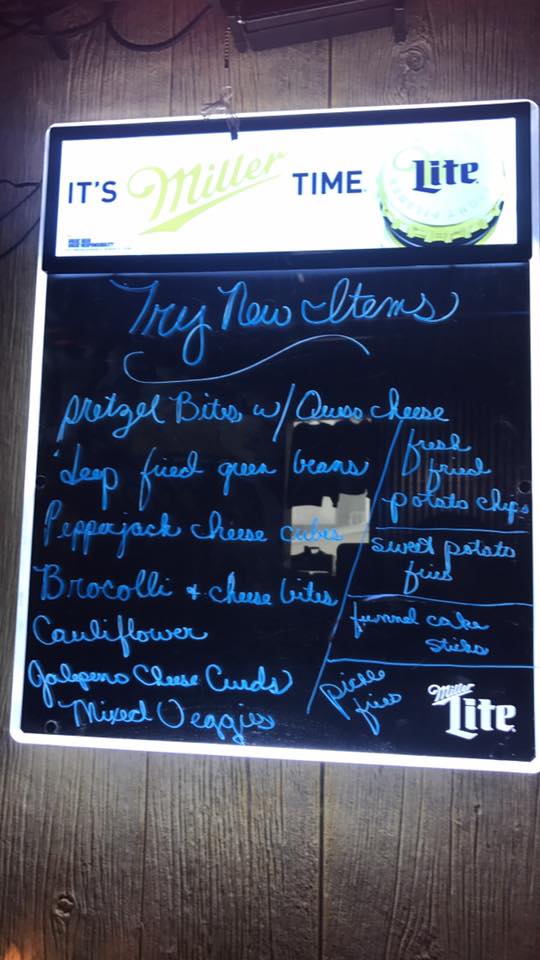 IT'S Miller TIME Lite
Try New Items
Pretzel Bites w/ Queso cheese
deep fried green beans
Pepperjack cheese cubes
Brocolli + cheese bites
Cauliflower
Jalepeno Cheese Curds
Mixed Veggies
fresh
fried
potato chips
sweet potato
fries
funnel cake
sticks
pickle
fries
Miller
Lite